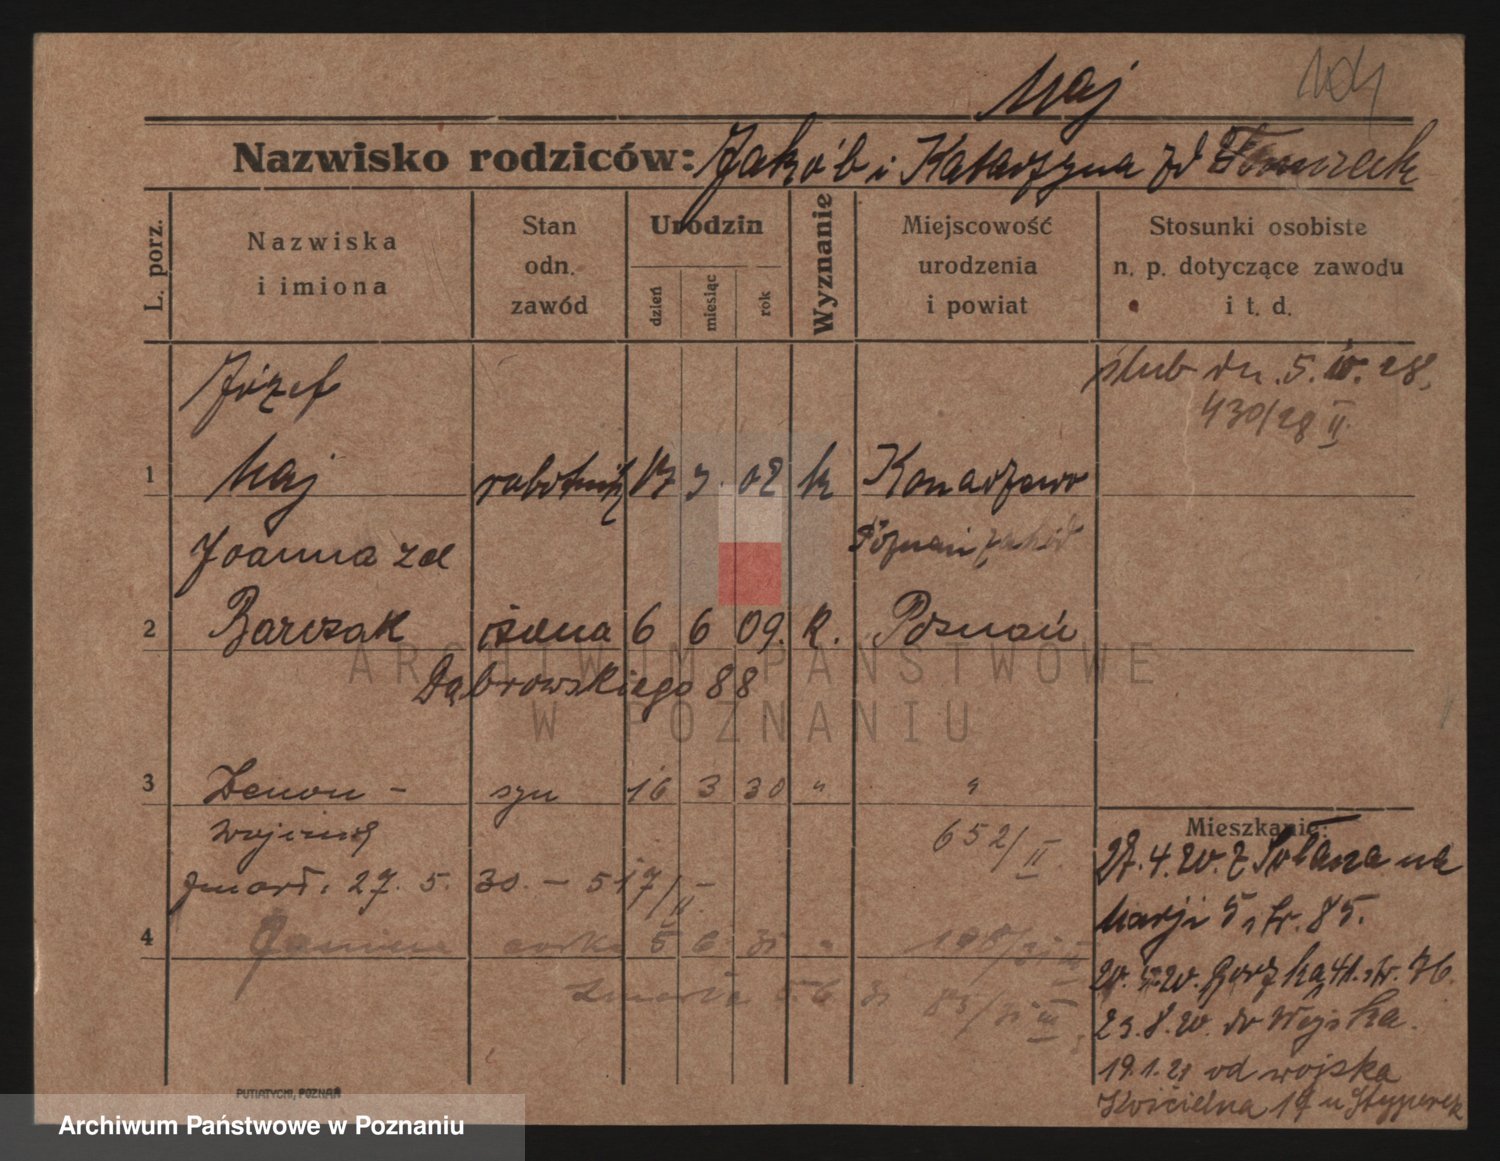 104
Maj
Nazwisko rodziców: Jakób i Katarzyna zd
L. porz.
Nazwiska i imiona
Stan odn. zawód
Urodzin
dzień miesiąc rok
Wyznanie
Miejscowość urodzenia i powiat
Stosunki osobiste n. p. dotyczące zawodu i t. d.
Józef
ślub dn. 5. IV. 28.
430/28 II
1 Maj robotnik 17 3 02 k Konarzewo
Joanna zd Poznań zachód
2 Barczak żona 6 6 09. k. Poznań
Dąbrowskiego 88
3 Zenon - syn 16 3 30 " "
Wojciech 652/II.
zmarł. 27. 5. 30. - 517/II.
4 Janina córka 5 6 31 " 108/31 III
zmarła 5.6 31 85/31 III
Mieszkanie:
27.4.20. z Sołacza na
Marji 5, tr. 85.
23.8.20. do Wojska.
19.1.21 od wojska
Kościelna 17 u
PUTIATYCKI, POZNAŃ
ARCHIWUM PAŃSTWOWE
W POZNANIU
Archiwum Państwowe w Poznaniu